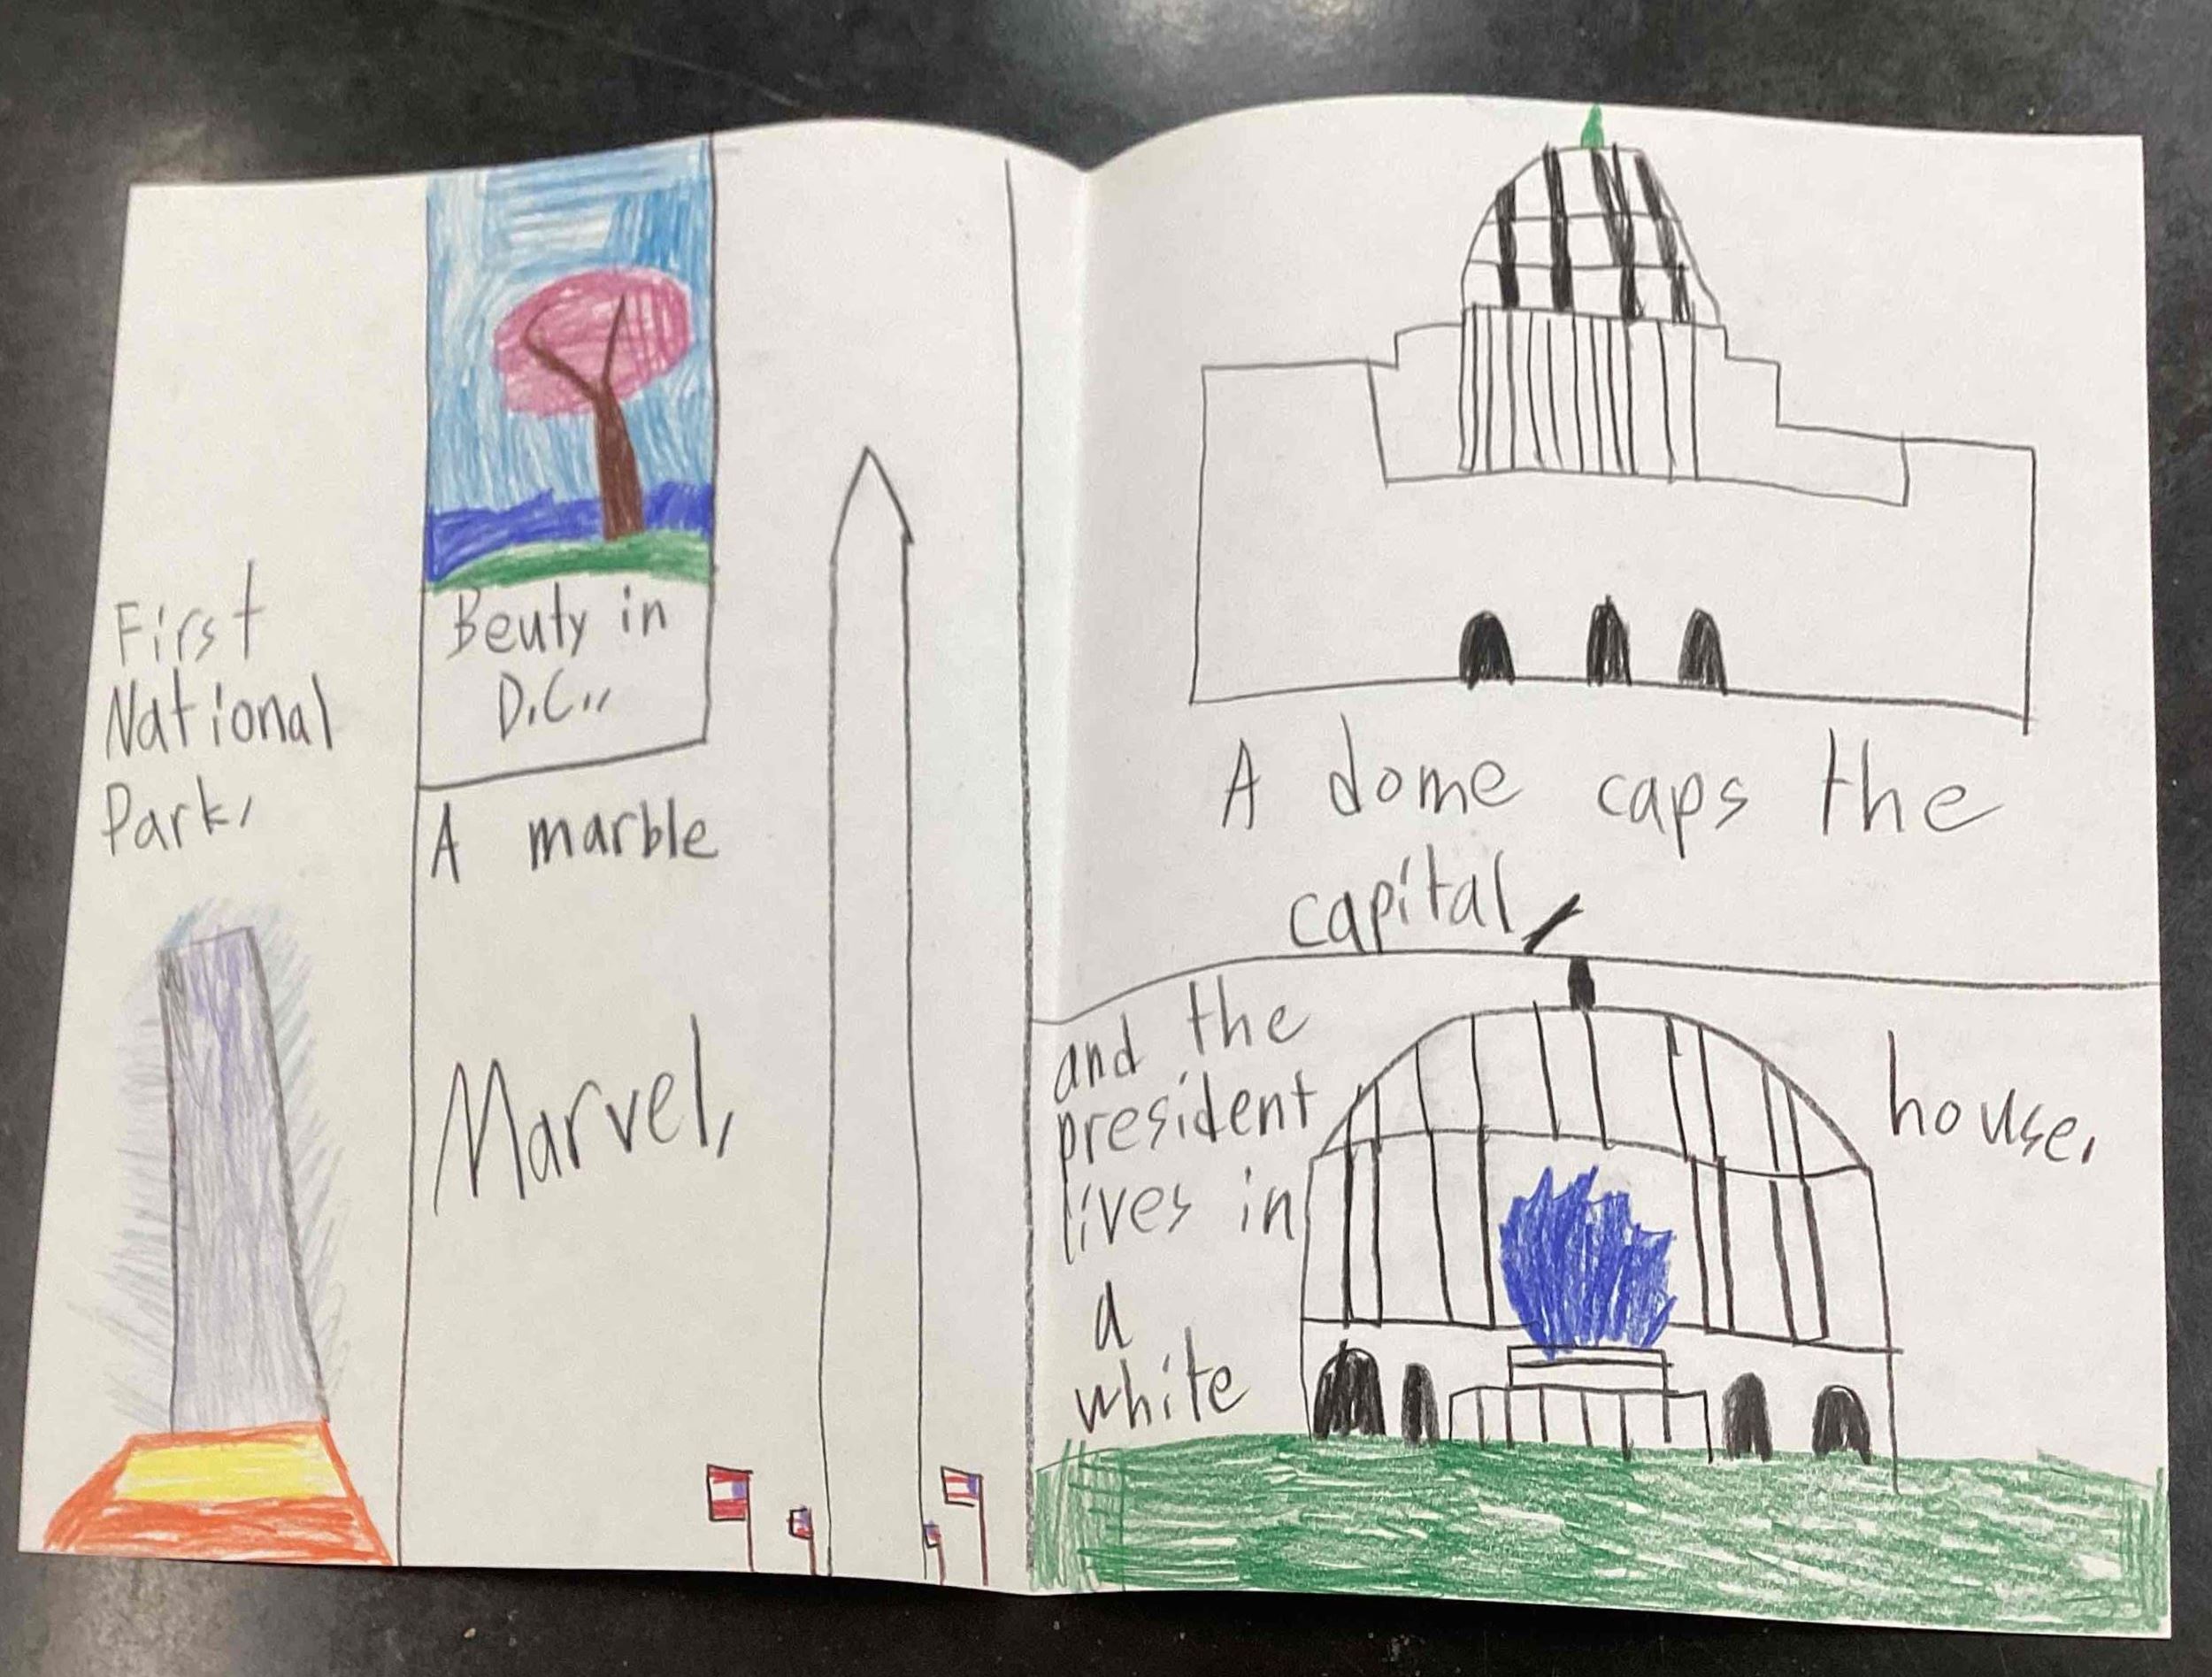 First
National
Park,
Beuty in
D.C.,,
A marble
Marvel,
A dome caps the
capital,
and the
president
lives in
a
white
house.